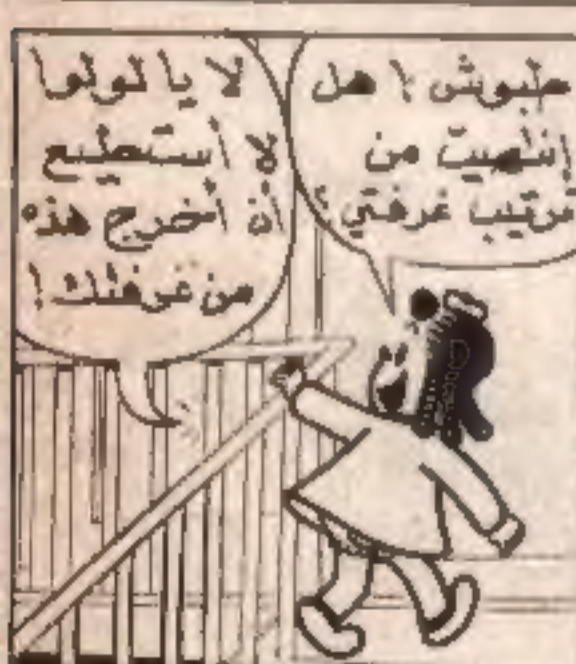 طبوش ! هل
إنتهيت من
ترتيب غرفتي ؟
لا يا لولو !
لا أستطيع
أن أخرج هذه
من غرفتك !